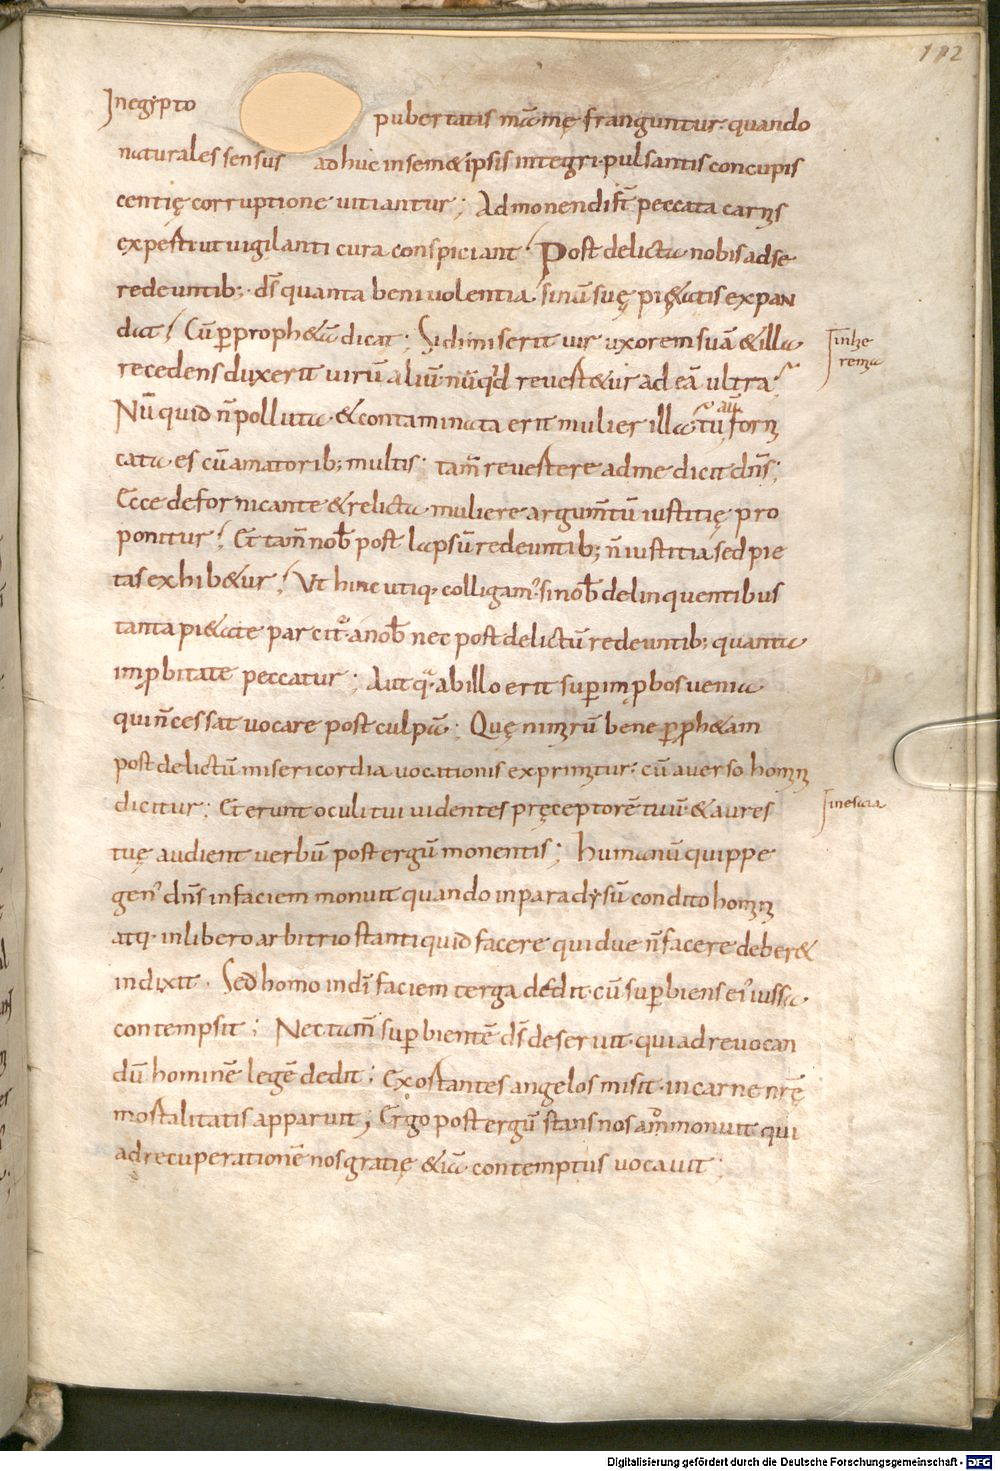 112
In egypto pubertatis māmę franguntur· quando
naturales sensus adhuc in sem&ipsis integri· pulsantis concupis
centię corruptione uitiantur; Admonendi st̄ peccata carnis
experti ut uigilanti cura conspiciant· Post delicta nobis ad se
redeuntib;· dś quanta beniuolentia sinū suę pi&atis expan
dat· Cū p̲ proph&ā dicat; Si dimiserit uir uxorem suā & illa
In hie
remia
recedens duxerit uirū aliū· nūq'd reuert&ur ad eā ultra
Nū quid n̄ polluta· & contaminata erit mulier illa· tu aū forni
cata es cū amatorib; multis; tam̄ reuertere ad me dicit dn̄s;
Ecce de fornicante & relicta muliere argum̄tū iustitię pro
ponitur· Et tam̄ nob̄ post lapsū redeuntib; n̄ iustitia sed pie
tas exhib&ur· Ut hinc utiq· colligam' si nob̄ delinquentibus
tanta pi&ate parcit'· a nob̄ nec post delictū redeuntib; quanta
imp̲bitate peccatur; Aut q· ab illo erit sup̲ imp̲bos uenia
qui n̄ cessat uocare post culpā; Quę nimirū bene p̲ proph&am
post delictū misericordia uocationis exprimitur· cū auerso homini
dicitur; Et erunt oculi tui uidentes pręceptorē tuū & aures
In esaia
tuę audient uerbū post ergū monentis; Humanū quippe
gen' dn̄s in faciem monuit quando in paradysū condito homini
atq· in libero arbitrio stanti quid facere quid ue n̄ facere deber&
indixit· Sed homo in dī faciem terga dedit· cū sup̲biens ei' iussa
contempsit; Nec tam̄ sup̲bientē dś deseruit· qui ad reuocan
dū hominē legē dedit; Exortantes angelos misit· in carne nr̄ę
mortalitatis apparuit; Ergo post ergū stans nos ammonuit qui
ad recuperationē nos gratię &iā contemptus uocauit;
Digitalisierung gefördert durch die Deutsche Forschungsgemeinschaft - DFG